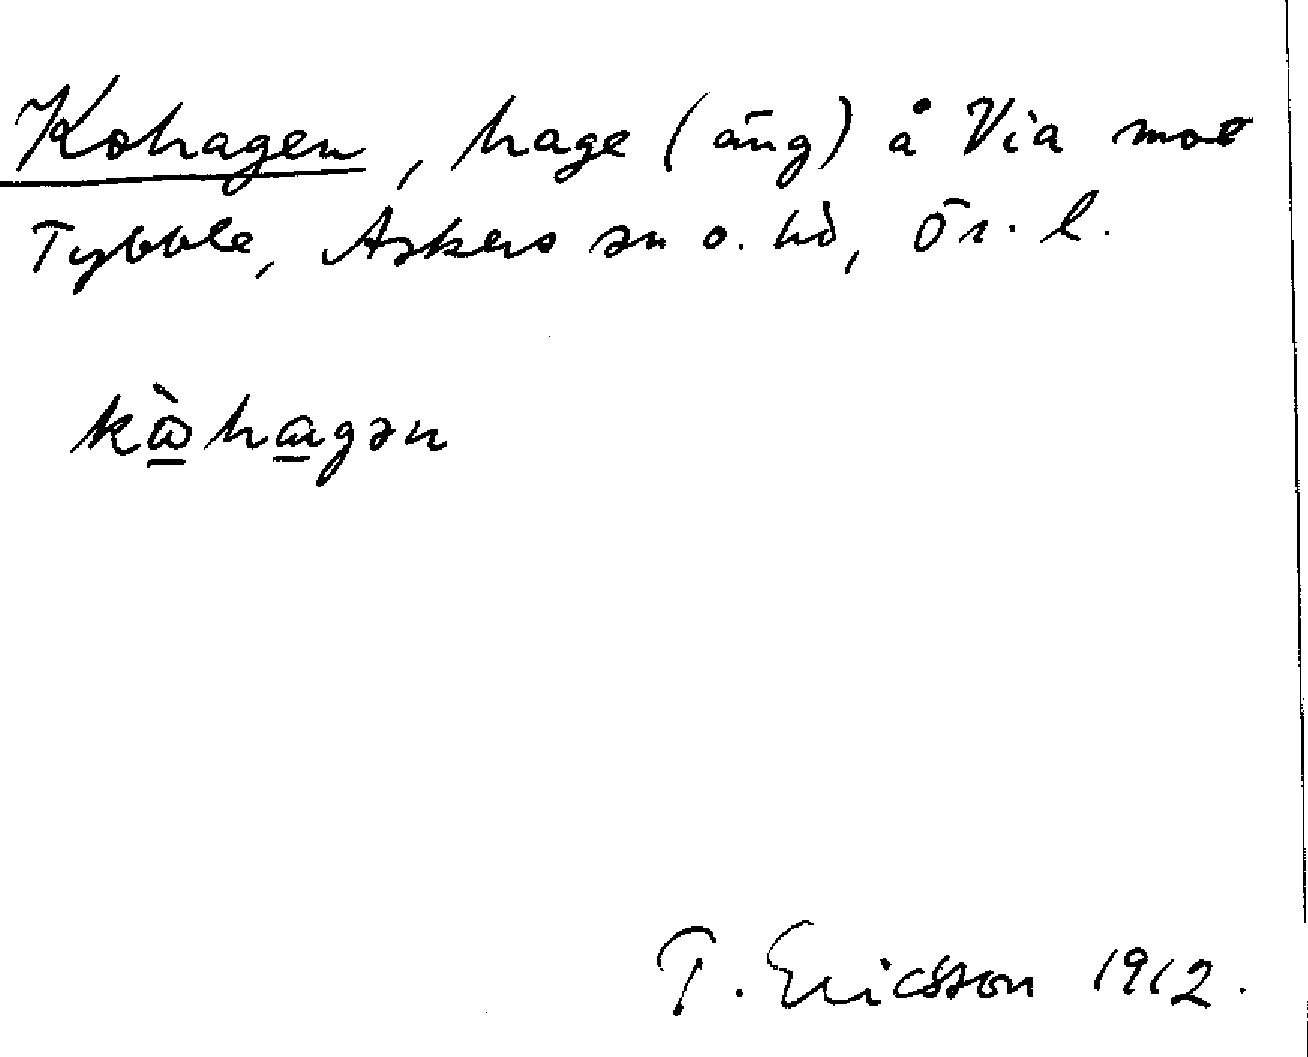 Kohagen, hage (äng) å Via mot
Tybble, Askers sn o. hd, Ör. l.
kὼhagən
T. Ericsson 1912.